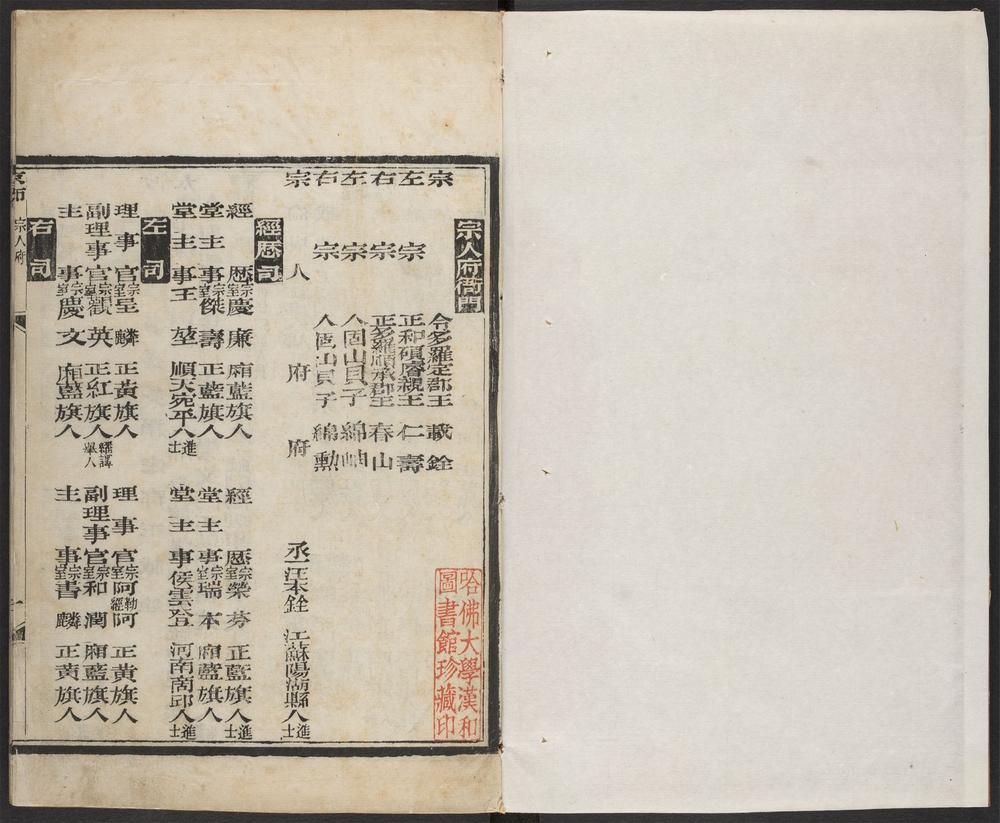 宗人府衙門
宗令多羅定郡王載銓
左宗正和碩睿親王仁壽
右宗正多羅順承郡王春山
左宗人固山貝子綿岫
右宗人固山貝子綿勳
宗人府府丞汪本銓江蘇陽湖縣人進士
經歷司
經歷宗室慶廉廂藍旗人 經歷宗室榮芬正藍旗人進士
堂主事宗室傑壽正藍旗人 堂主事宗室瑞本廂藍旗人
堂主事王堃順天宛平人進士 堂主事侯雲登河南商邱人進士
左司
理事官宗室呈麟正黃旗人 理事官宗室阿勒經阿正黃旗人
副理事官宗室觀英正紅旗人繙譯舉人 副理事官宗室和潤廂藍旗人
主事宗室慶文廂藍旗人 主事宗室書麟正黃旗人
右司
宗人府
哈佛大學漢和
圖書館珍藏印